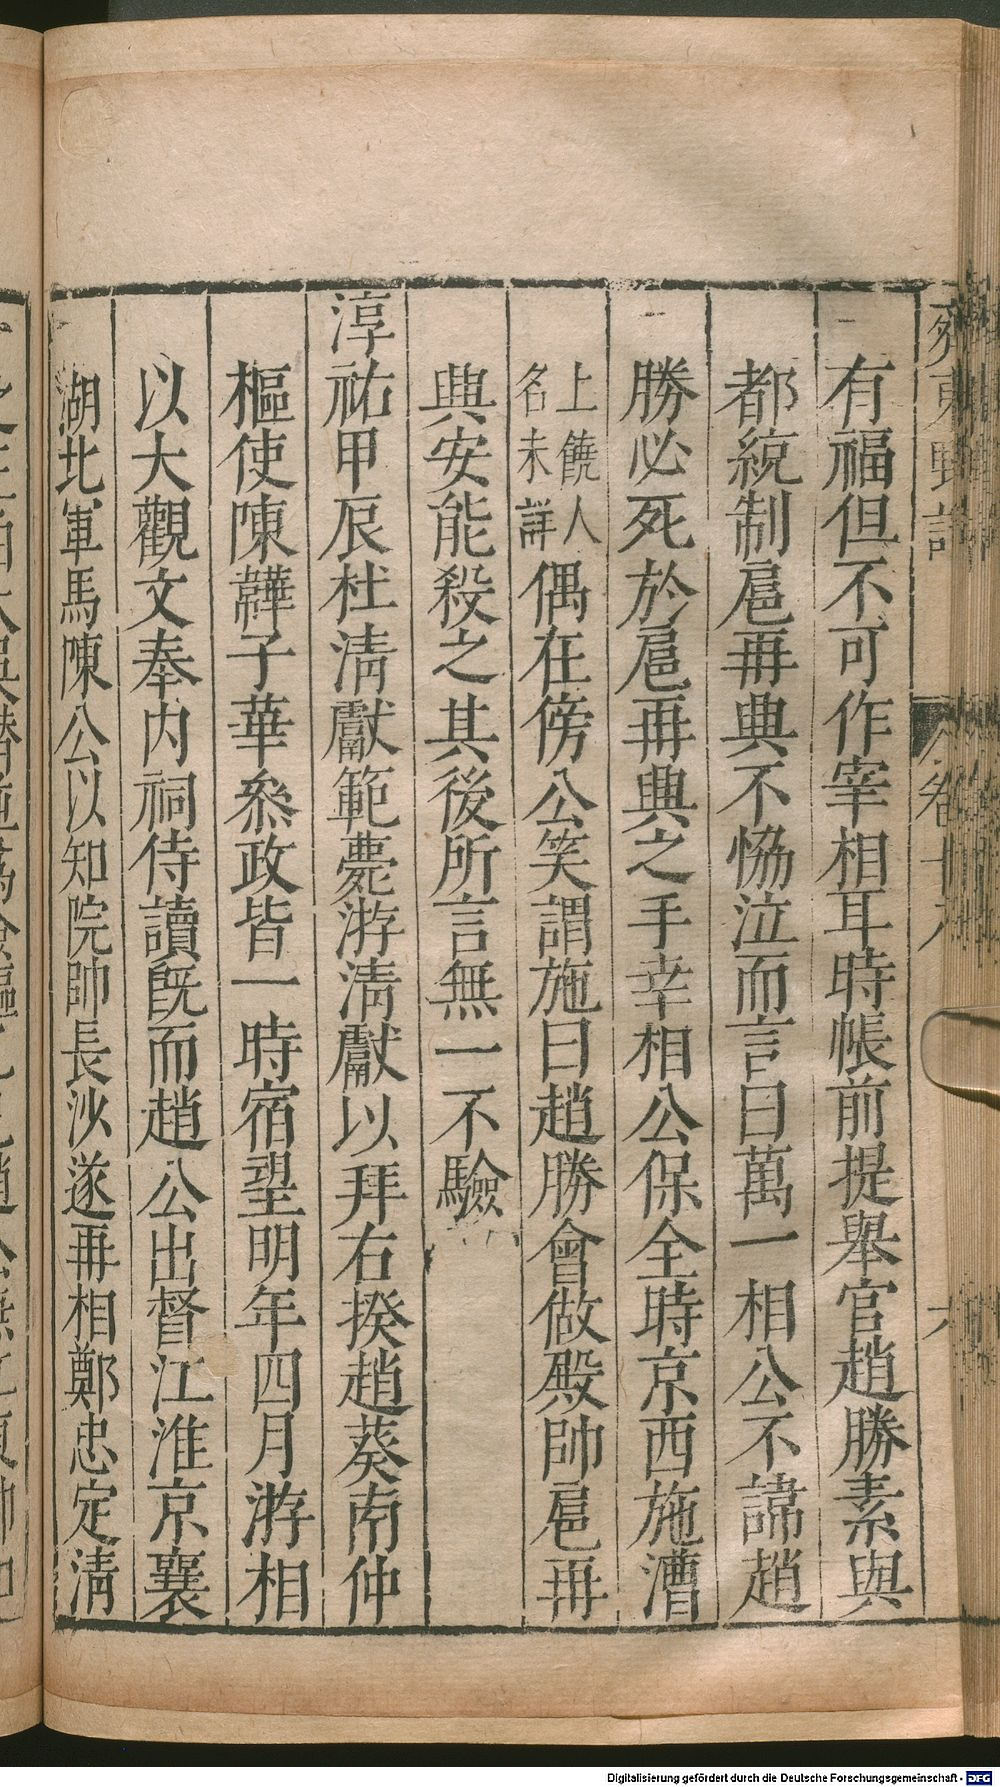 齊東野語
卷十八
六
有福但不可作宰相耳時帳前提舉官趙勝素與
都統制扈再興不恊泣而言曰萬一相公不諱趙
勝必死於扈再興之手幸相公保全時京西施漕
上饒人名未詳偶在傍公笑謂施曰趙勝會做殿帥扈再
興安能殺之其後所言無一不驗
淳祐甲辰杜淸獻範薨游淸獻以拜右揆趙葵南仲
樞使陳韡子華叅政皆一時宿望明年四月游相
以大觀文奉內祠侍讀旣而趙公出督江淮京襄
湖北軍馬陳公以知院帥長沙遂再相鄭忠定淸
Digitalisierung gefördert durch die Deutsche Forschungsgemeinschaft - DFG